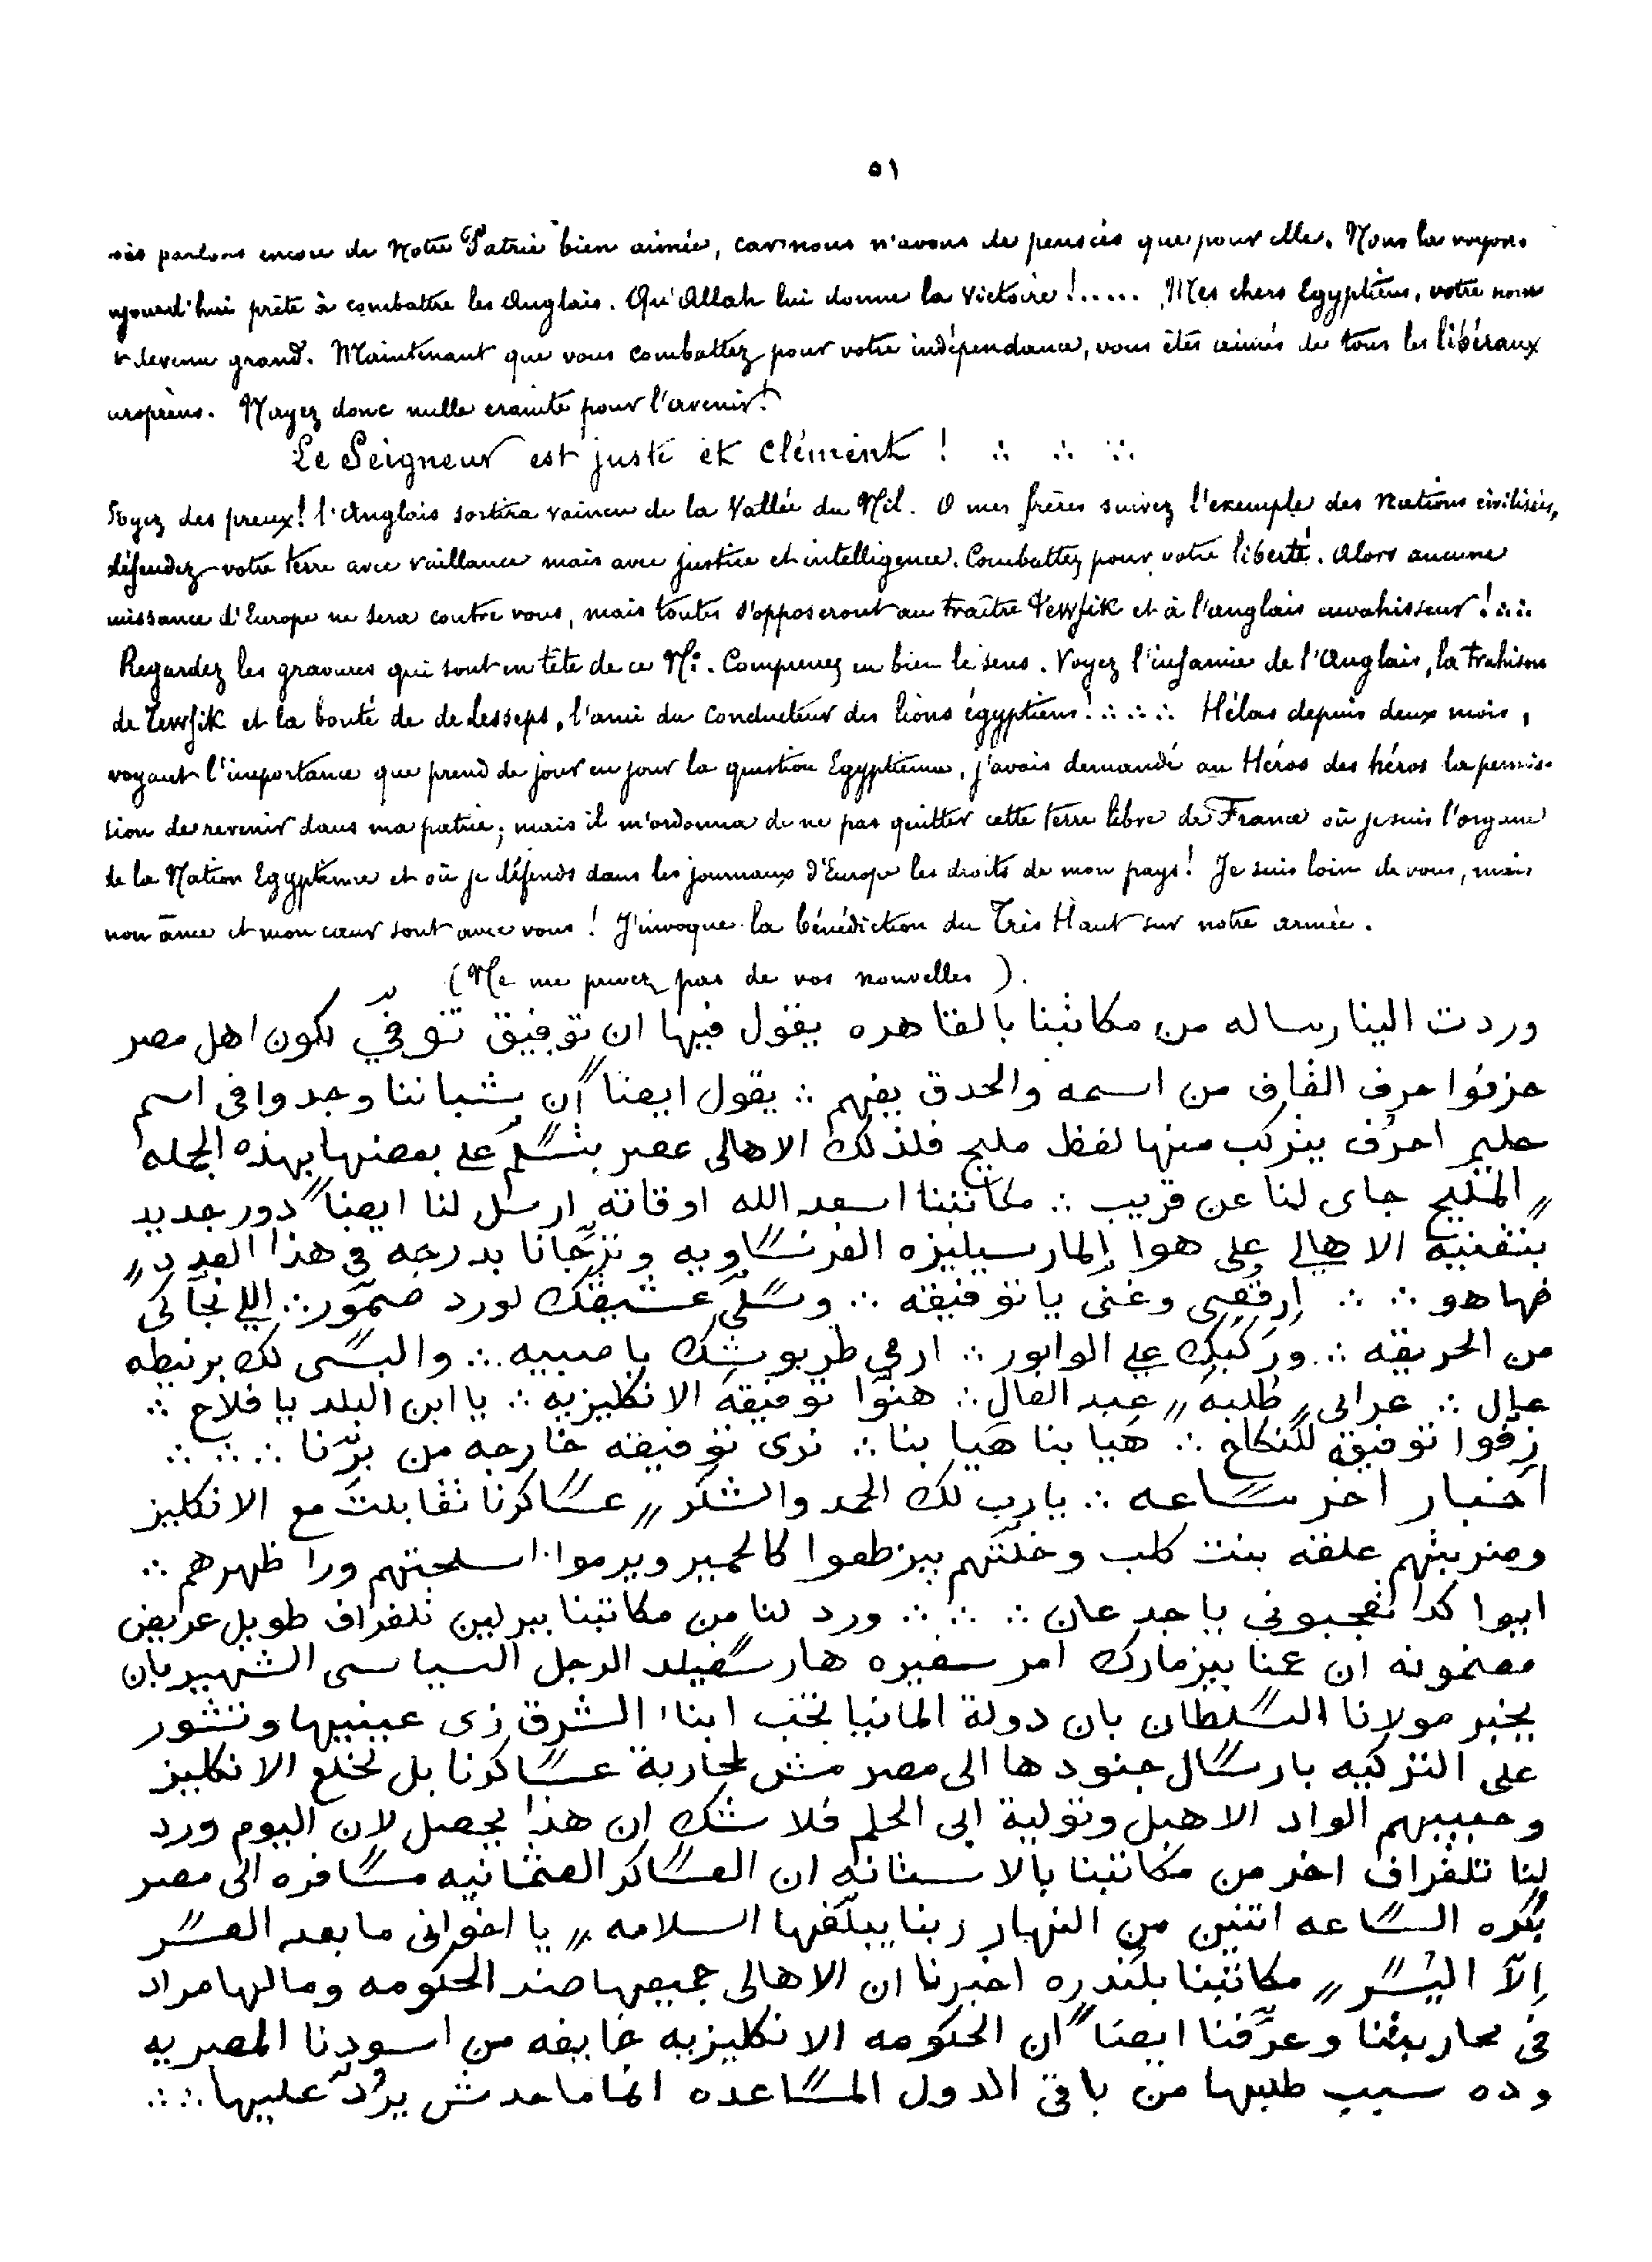 ٥١
parlons encore de Notre Patrie bien aimée, car nous n'avons de pensées que pour elle. Nous la voyons
ujourd'hui prête à combattre les Anglais. Qu'Allah lui donne la victoire !..... Mes chers Egyptiens, votre nom
devenu grand. Maintenant que vous combattez pour votre indépendance, vous êtes aimés de tous les libéraux
uropéens. N'ayez donc nulle crainte pour l'avenir !
Le Seigneur est juste et clément ! ∴ ∴ ∵
Soyez des preux ! l'Anglais sortira vaincu de la Vallée du Nil. O mes frères suivez l'exemple des Nations civilisées,
défendez votre terre avec vaillance mais avec justice et intelligence. Combattez pour votre liberté. Alors aucune
uissance d'Europe ne sera contre vous, mais toutes s'opposeront au traître Tewfik et à l'anglais envahisseur ! ∴
Regardez les gravures qui sont en tête de ce No. Comprenez en bien le sens. Voyez l'infamie de l'Anglais, la trahison
de Tewfik et la bonté de de Lesseps, l'ami du conducteur des lions égyptiens ! ∴ ∴ Hélas depuis deux mois,
voyant l'importance que prend de jour en jour la question Egyptienne, j'avais demandé au Héros des héros la permis-
sion de revenir dans ma patrie ; mais il m'ordonna de ne pas quitter cette terre libre de France où je suis l'organe
de la Nation Egyptienne et où je défends dans les journaux d'Europe les droits de mon pays ! Je suis loin de vous, mais
mon âme et mon cœur sont avec vous ! J'invoque la bénédiction du Très Haut sur notre armée.
(Ne me privez pas de vos nouvelles).
وردت الينا رساله من مكاتبنا بالقاهره يقول فيها ان توفيق توفّي لكون اهل مصر
حزفوا حرف القاف من اسمه والحدق يفهم ∴ يقول ايضاً ان شباننا وجدوا فى اسم
حليم احرُف يتركب منها لفظ مليح فلذلك الاهالى عمبر بتسلم على بعضها بهذه الجمله
〃 المليح جاى لنا عن قريب ∴ مكاتبنا اسعد الله اوقاته ارسل لنا ايضاً دور جديد
بتغنيه الاهالى على هوا المارسيليزه الفرنساويه ونترجّانا بدرجه فى هذا العدد 〃
فها هو ∴ ∴ ارقصى وغنى يا توفيقه ∴ وسلّى عشيقك لورد صمّور ∴ اللى نجّاكى
من الحريقه ∴ وركّبك على الوابور ∴ ارمى طربوشك يا صبيه ∴ والبسى لك برنيطه
عال ∴ عرابى 〃 طلبه 〃 عبد العال ∴ هنّوا توفيقه الانكليزيه ∴ يا ابن البلد يا فلاح ∴
زفّوا توفيقه للنكاح ∴ هيا بنا هيا بنا ∴ نرى توفيقه خارجه من برّنا ∴ ∴ ∴
اخبار اخر ساعه ∴ يارب لك الحمد والشكر 〃 عساكرنا تقابلت مع الانكليز
وضربتهم علقه بنت كلب وخلتهم بيزطعوا كالحمير ويرموا اسلحتهم ورا ظهرهم ∴
ايوا كدا تعجبونى يا جدعان ∴ ∴ ∴ ورد لنا من مكاتبنا ببرلين تلغراف طويل عريض
مضمونه ان عمنا بيزمارك امر سفيره هارسفيلد الرجل السياسى الشهير بان
يخبر مولانا السلطان بان دولة المانيا تحب ابناء الشرق زى عينيها وتشور
على التركيه بارسال جنودها الى مصر مش لمحاربة عساكرنا بل لخلع الانكليز
وحبيبهم الواد الاهبل وتولية ابى الحلم فلا شك ان هذا يحصل لان اليوم ورد
لنا تلغراف اخر من مكاتبنا بالاستانه ان العساكر العثمانيه مسافره الى مصر
بُكره الساعه اتنين من النهار ربنا يبلّغها السلامه 〃 يا اخوانى ما بعد العسر
إلّا اليُسر 〃 مكاتبنا بلندره اخبرنا ان الاهالى جميعها ضد الحكومه ومالها مراد
فى محاربتنا وعرّفنا ايضاً ان الحكومه الانكليزيه خايفه من اسودنا المصريه
وده سبب طلبها من باقى الدول المساعده انما ماحدش يرُدّ عليها ∴ ∴